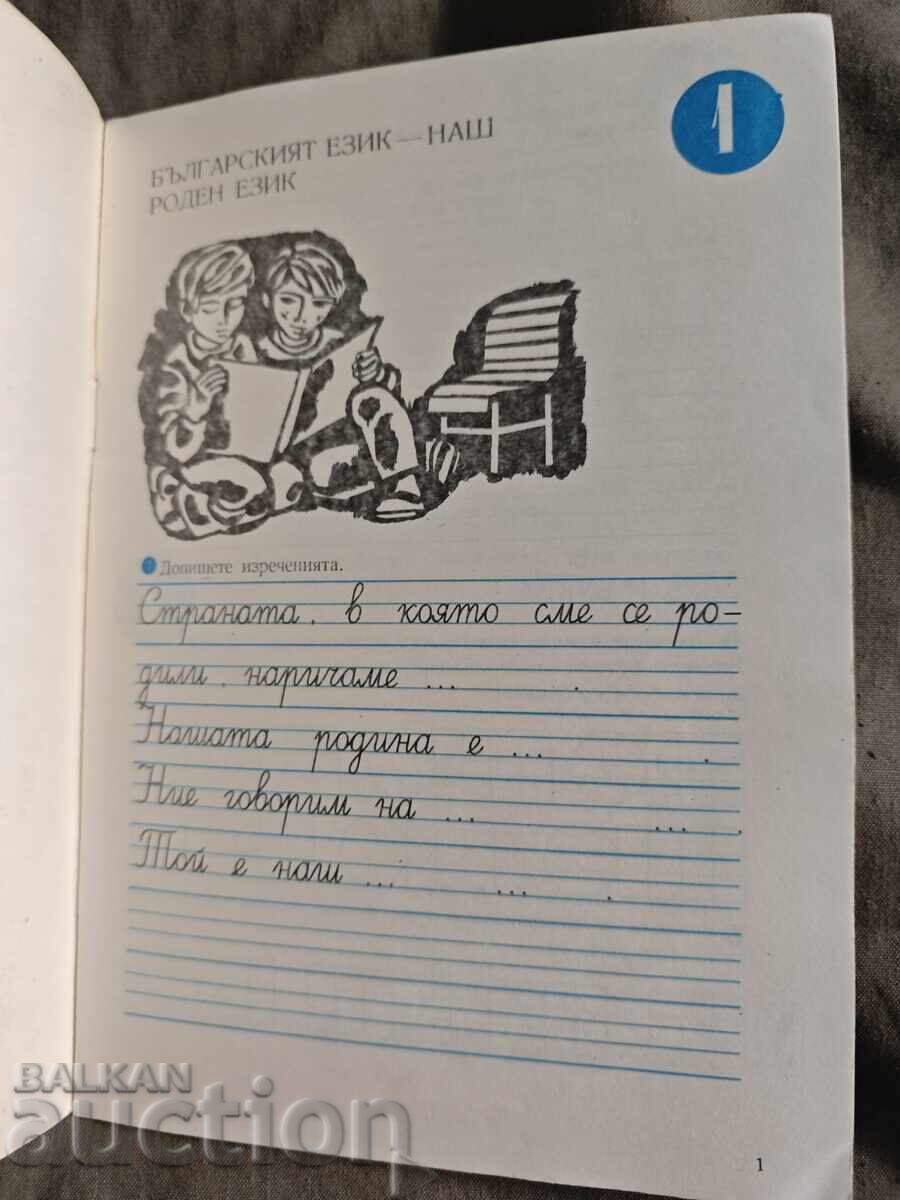 1
БЪЛГАРСКИЯТ ЕЗИК — НАШ
РОДЕН ЕЗИК
1 Допишете изреченията.
Страната, в която сме се ро-
дили, наричаме ... .
Нашата родина е ... .
Ние говорим на ... ... .
Той е наш ... ... .
BALKAN
auction
1